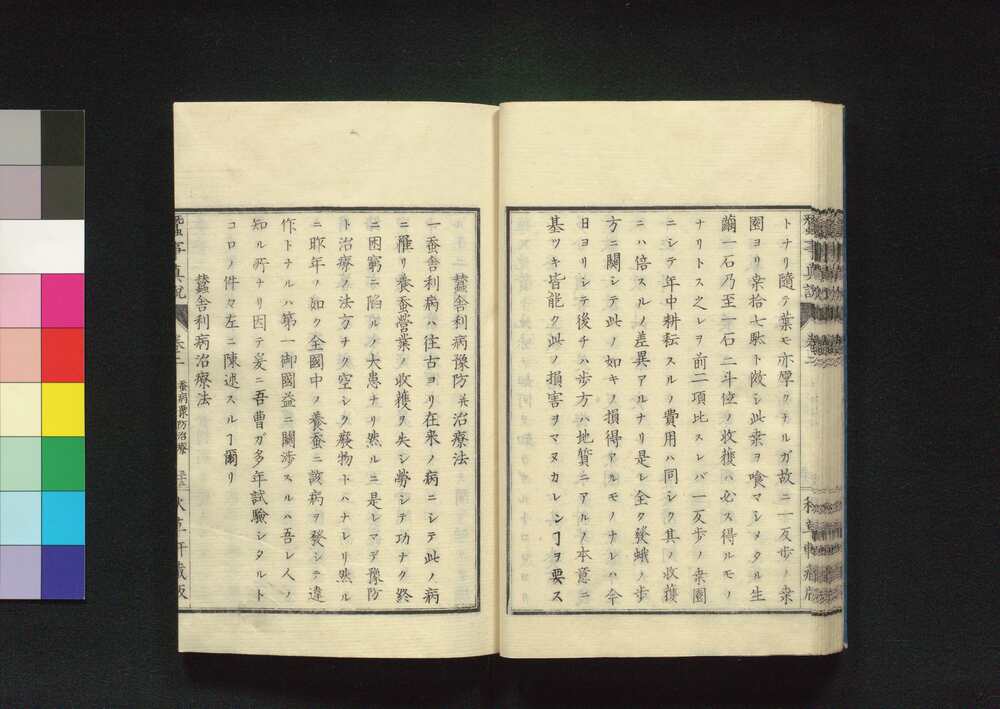 トナリ隨テ葉モ亦厚クナルガ故ニ一反歩ノ桒
園ヨリ桒拾七駄ト做シ此桒ヲ喰マシメタル生
繭一石乃至一石二斗位ノ收獲ハ必ス得ルモノ
ナリトス之レヲ前二項比スレバ一反歩ノ桒園
ニシテ年中耕耘スルノ費用ハ同シク其ノ收獲
ニハ倍スルノ差異アルナリ是レ全ク發蛾ノ歩
方ニ關シテ此ノ如キノ損得アルモノナレハ今
日ヨリシテ後チハ歩方ハ地質ニアルノ本意ニ
基ツキ皆能ク此ノ損害ヲマヌカレンヿヲ要ス
蠶舎利病豫防並治療法
一蚕舎利病ハ往古ヨリ在来ノ病ニシテ此ノ病
ニ罹リ養蚕營業ノ收獲ヲ失シ勞シテ功ナク終
ニ困窮ニ陷ルノ大患ナリ然ルニ是レマデ豫防
ト治療ノ法方ナク空シク癈物トハナレリ然ル
ニ昨年ノ如ク全國中ノ養蚕ニ該病ヲ發シテ違
作トナルハ第一御國益ニ關渉スルハ吾レ人ノ
知ル所ナリ因テ爰ニ吾曹ガ多年試驗シタルト
コロノ件々左ニ陳述スルヿ爾リ
蠶舎利病治療法
蚕病豫防治療